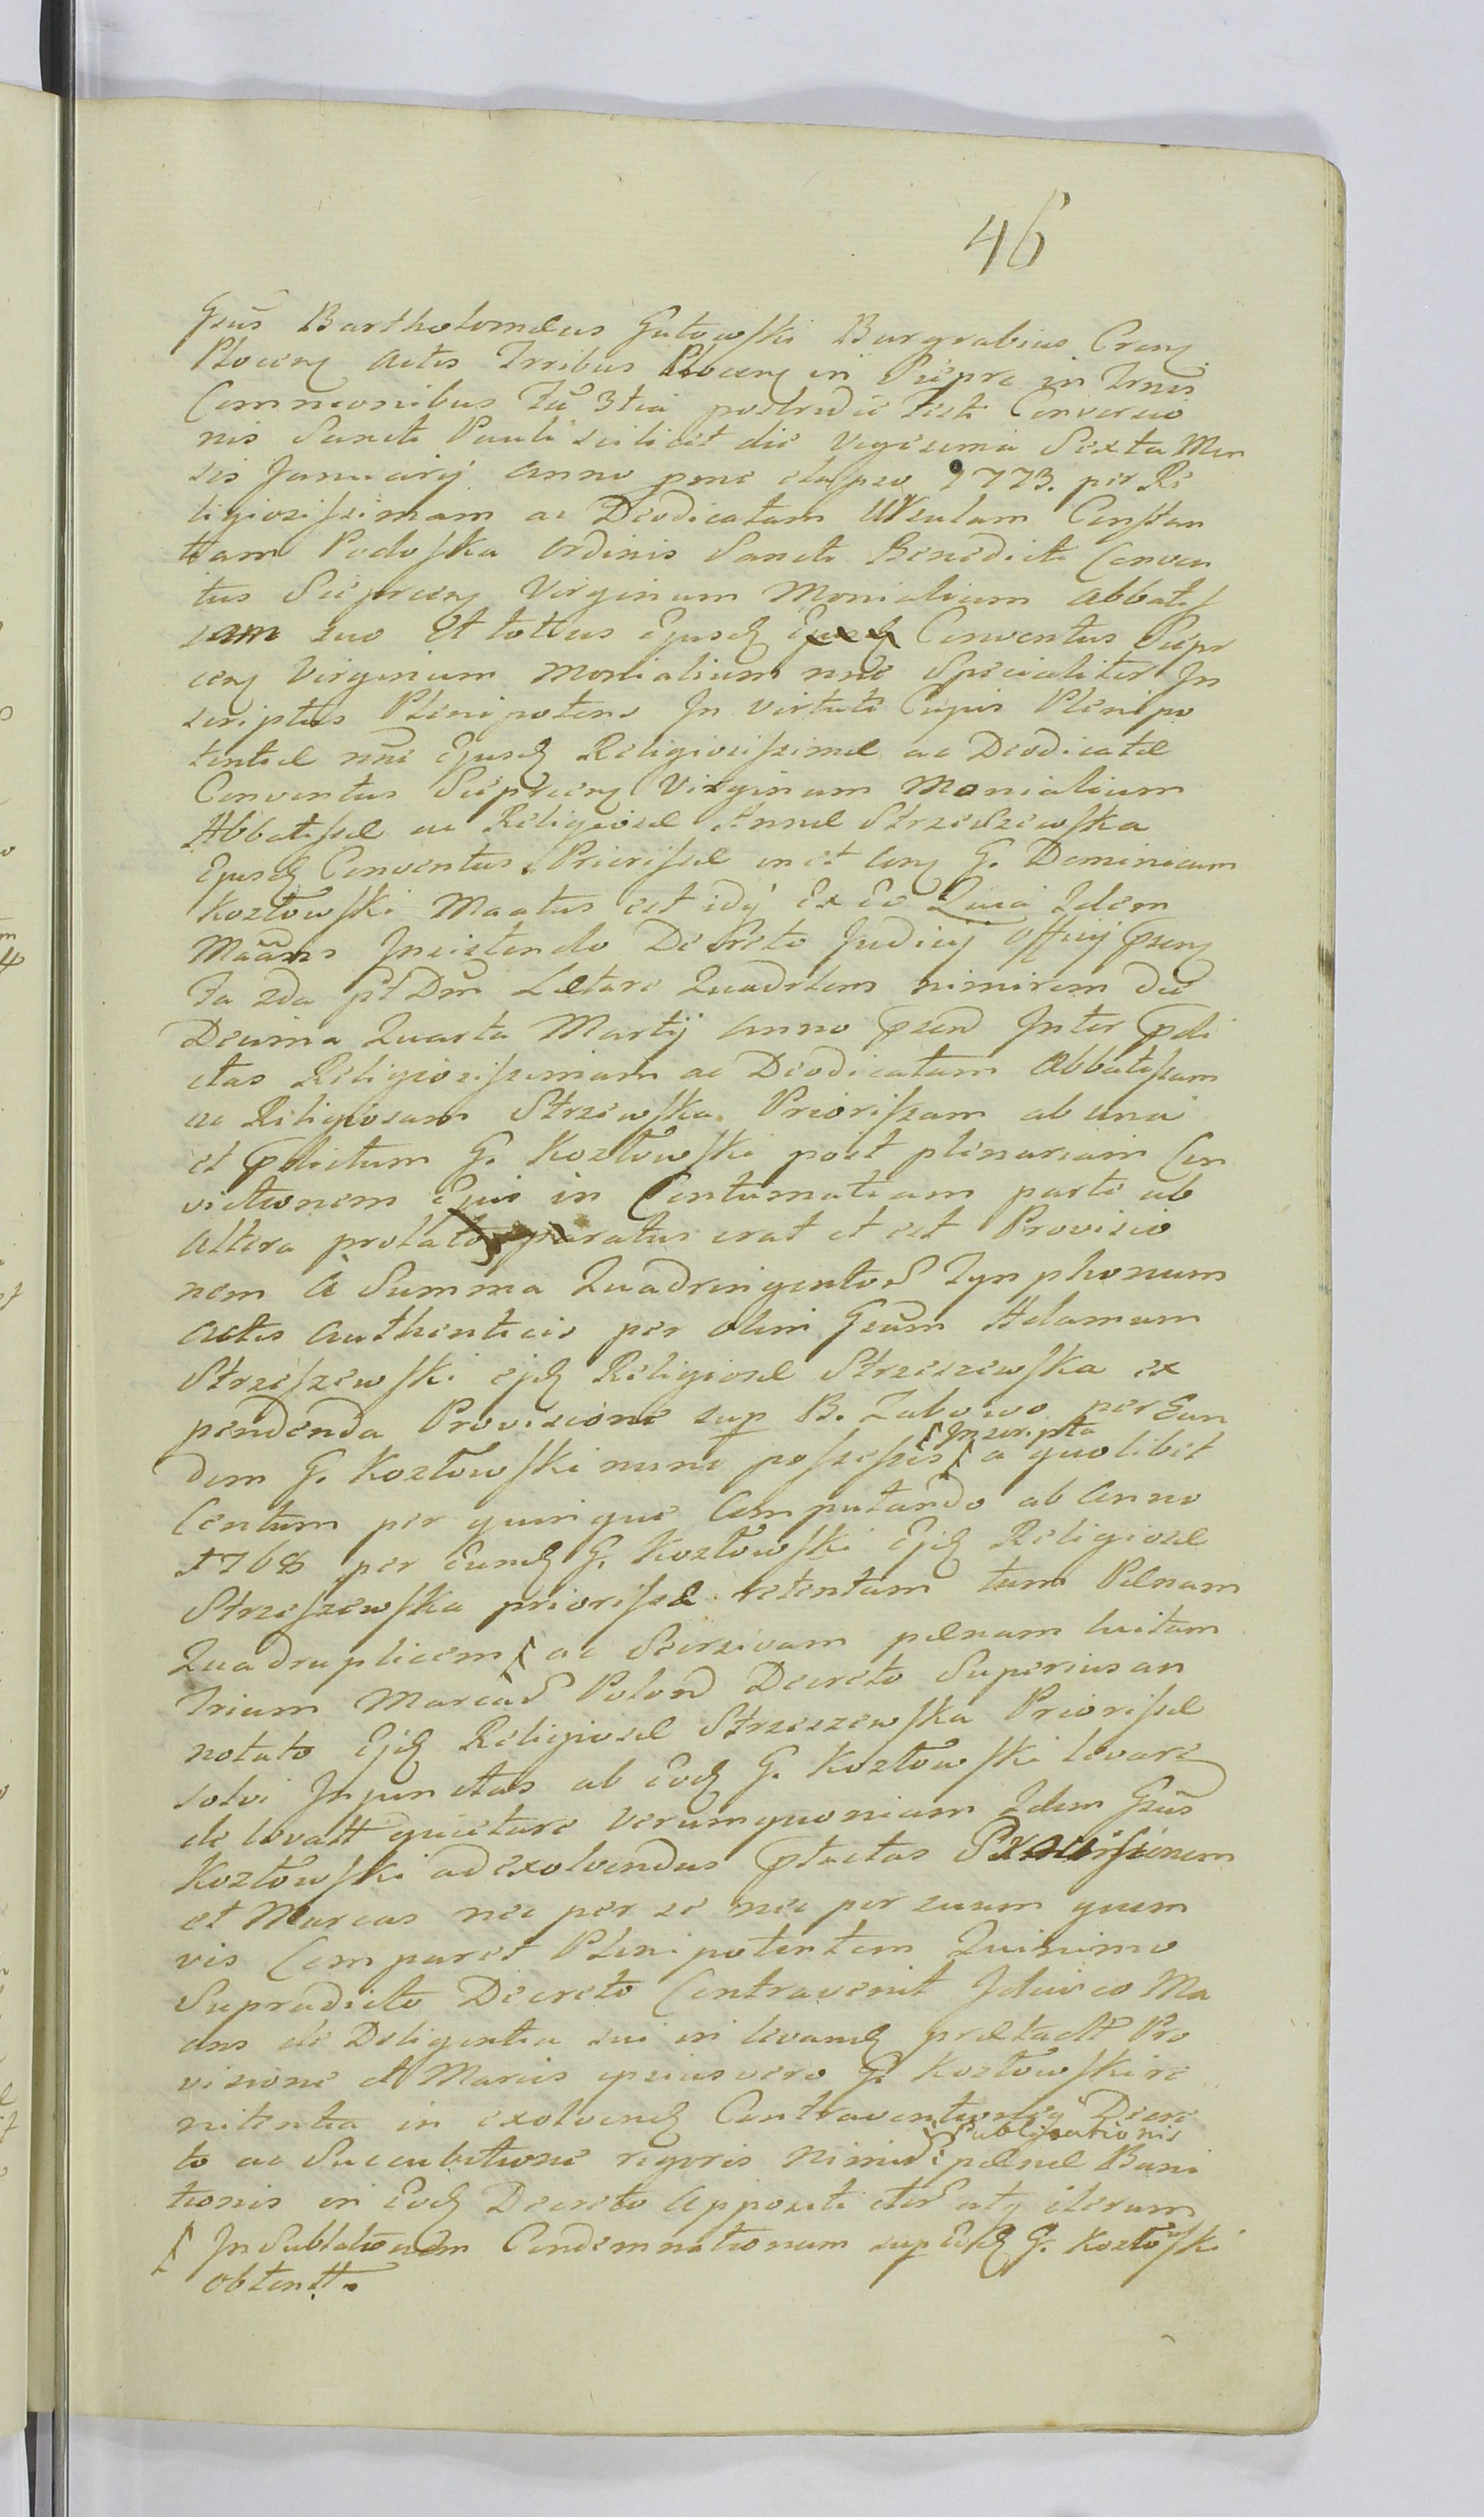 46
Gsūs Bartholomæus Gutowski Burgrabius Cren
Plocen Actis Trribus Plocen in Siepre in Trnis
Comnionibus Fā 3tia postridie Festi Conversio
nis Sancti Pauli scilicet die Vigesima Sexta Men
sis Januarij Anno pene elapso 1773. per Re
ligiosissimam ac Deodicatam Ursulam Constan
tiam Podoska Ordinis Sancti Benedicti Conven
tus Siepricen Virginum Monialium Abbatis
sam suo et totius Ejusd Conventus Siepr
cen Virginum Monialium nnē Specialiter In
scriptus Plenipotens In Virtute Cujus Plenipo
tentiæ nnē Ejusd Religiosissimæ ac Deodicatæ
Conventus Siepricen Virginum Monialium
Abbatissæ ac Religiosæ Annæ Strzeszewska
Ejusd Conventus Priorissæ in et con G. Dominicum
Kozłowski Maatus est idq Ex Eo Quia Idem
Maans Insistendo Decreto Judicij Officij psen
Fa 2da pt Dm Lætare Quadrlem nimirum die
Decima Quarta Martij Anno psend Inter pdi
ctas Religiosissimam ac Deodicatam Abbatissam
ac Religiosam Strzewska Priorissam ab una
et pdictum G. Kozłowski post plenariam Con
victionem Ejus in Contumatiam parte ab
altera prolato paratus erat et est Provisio
nem à Summa Quadringentor Tynphonum
actis authenticis per olim Gsum Adamum
Strzeszewski ejd Religiosæ Strzeszewska ex
pendenda Provisione sup B. Zabowo per Eun
dem G. Kozłowski nunc possessis ſ Inscripta ſ a quolibet
Centum per quinque Computando ab Anno
1768 per Eund G. Kozłowski Ejd Religiosæ
Strzeszewska priorissæ retentam tum Pænam
Quadruplicem ſ ac Seorsivam pænam luitam
Trium Marcar Polond Decreto Superius an
notato Ejd Religiosæ Strzeszewska Priorissæ
solvi Injunctas ab Eod G. Kozłowski levare
de levatt quietare verumquoniam Idem Gsus
Kozłowski ad exolvendas ptactas Provisionem
et Marcas nec per se nec per suum quem
vis Comparet Plenipotentem Quinimo
Supradicto Decreto Contravenit Idcirco Ma
ans de Deligentia sui in levand prætactt Pro
visione et Marcis ipsius vero G. Kozłowski re
nitentia in exolvend Contraventioneq Decre
to ac Succubitione rigoris nimir ſ Publicationis pænæ Bani
tionis in Eod Decreto Appositi citer atq iterum
ſ In Sublationem Condemnationum sup Eod G. Kozłowski
obtentt.